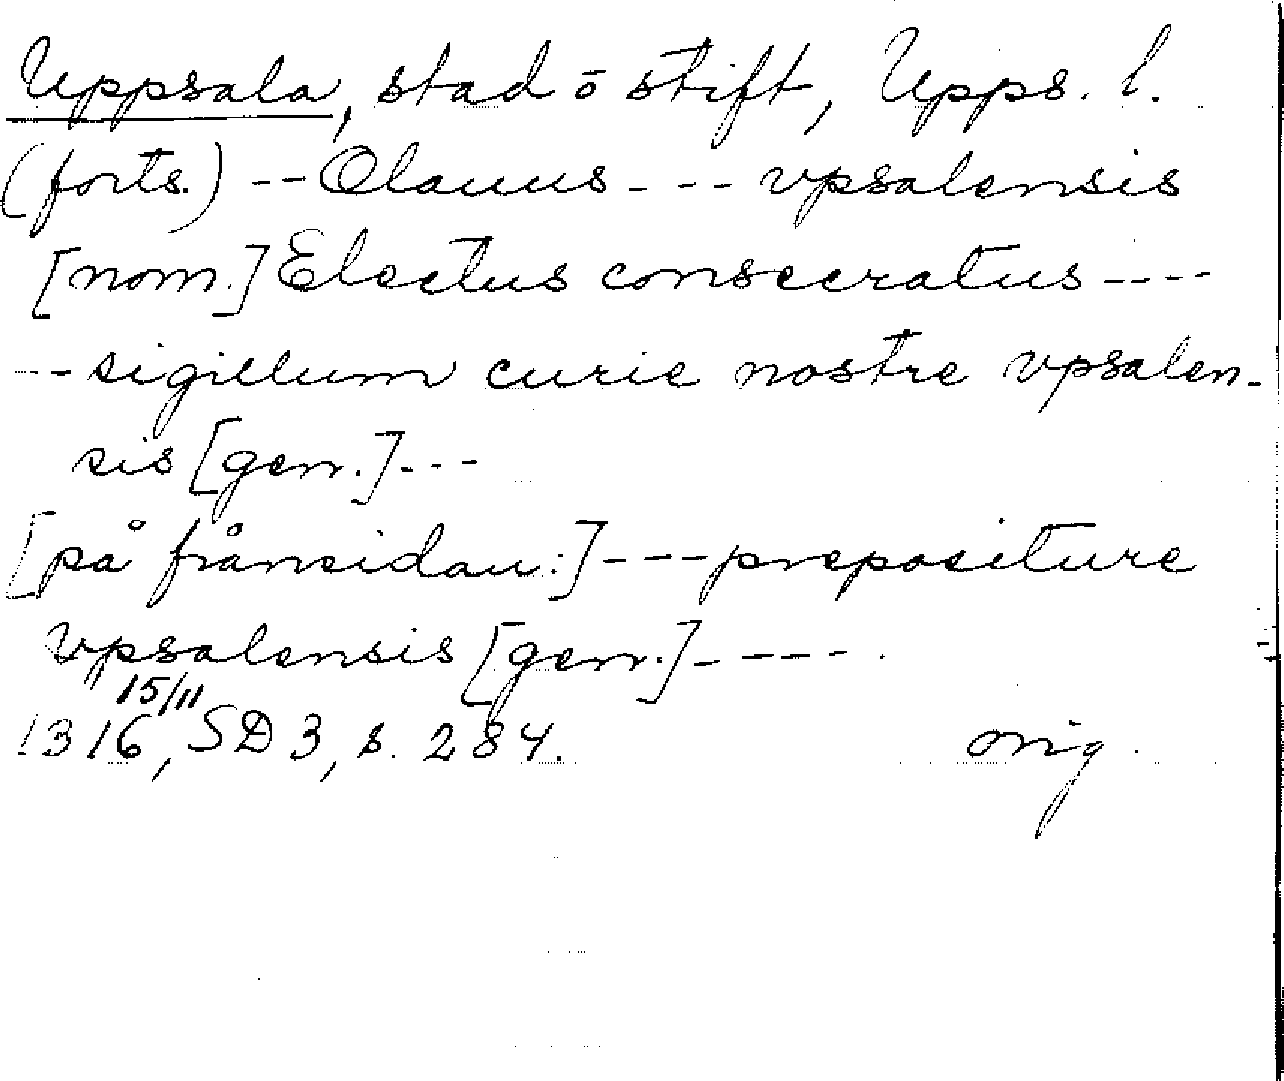 Uppsala, stad o stift, Upps. l.
(forts.) --Olauus---vpsalensis
[nom.] Electus consecratus----
---sigillum curie nostre vpsalen-
sis [gen.]---
[på frånsidan:]---prepositure
vpsalensis [gen.]-----.
15/11
1316, SD 3, s. 284. orig.